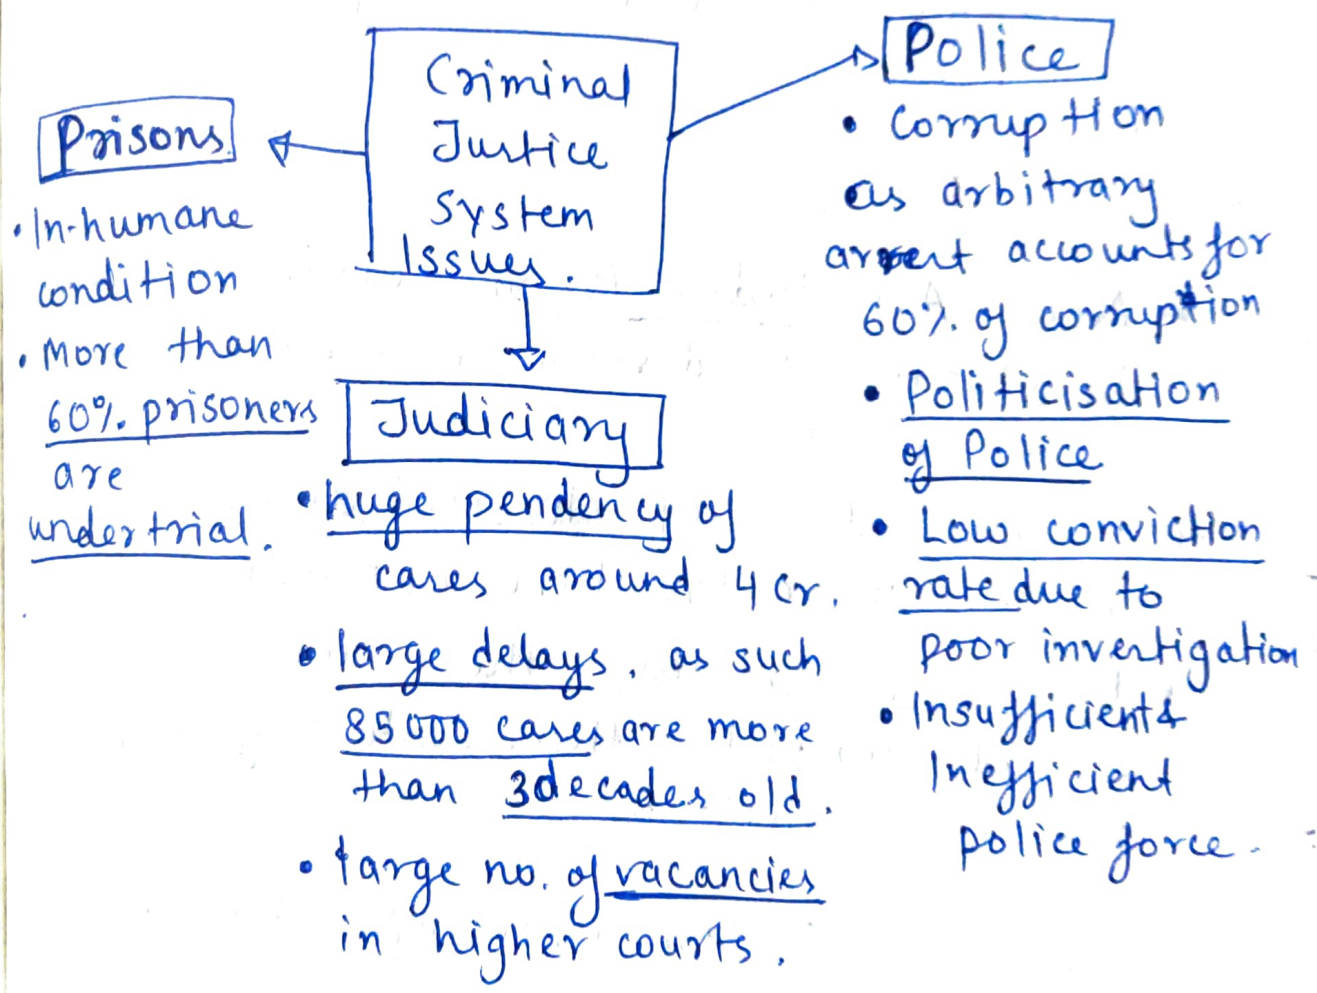 Criminal
Justice
System
Issues.
Prisons
• In-humane
condition
• More than
60% prisoners
are
undertrial.
Judiciary
• huge pendency of
cases around 4 Cr.
• large delays, as such
85000 cases are more
than 3 decades old.
• large no. of vacancies
in higher courts.
Police
• Corruption
as arbitrary
arrest accounts for
60% of corruption
• Politicisation
of Police
• Low conviction
rate due to
poor investigation
• Insufficient &
Inefficient
police force.